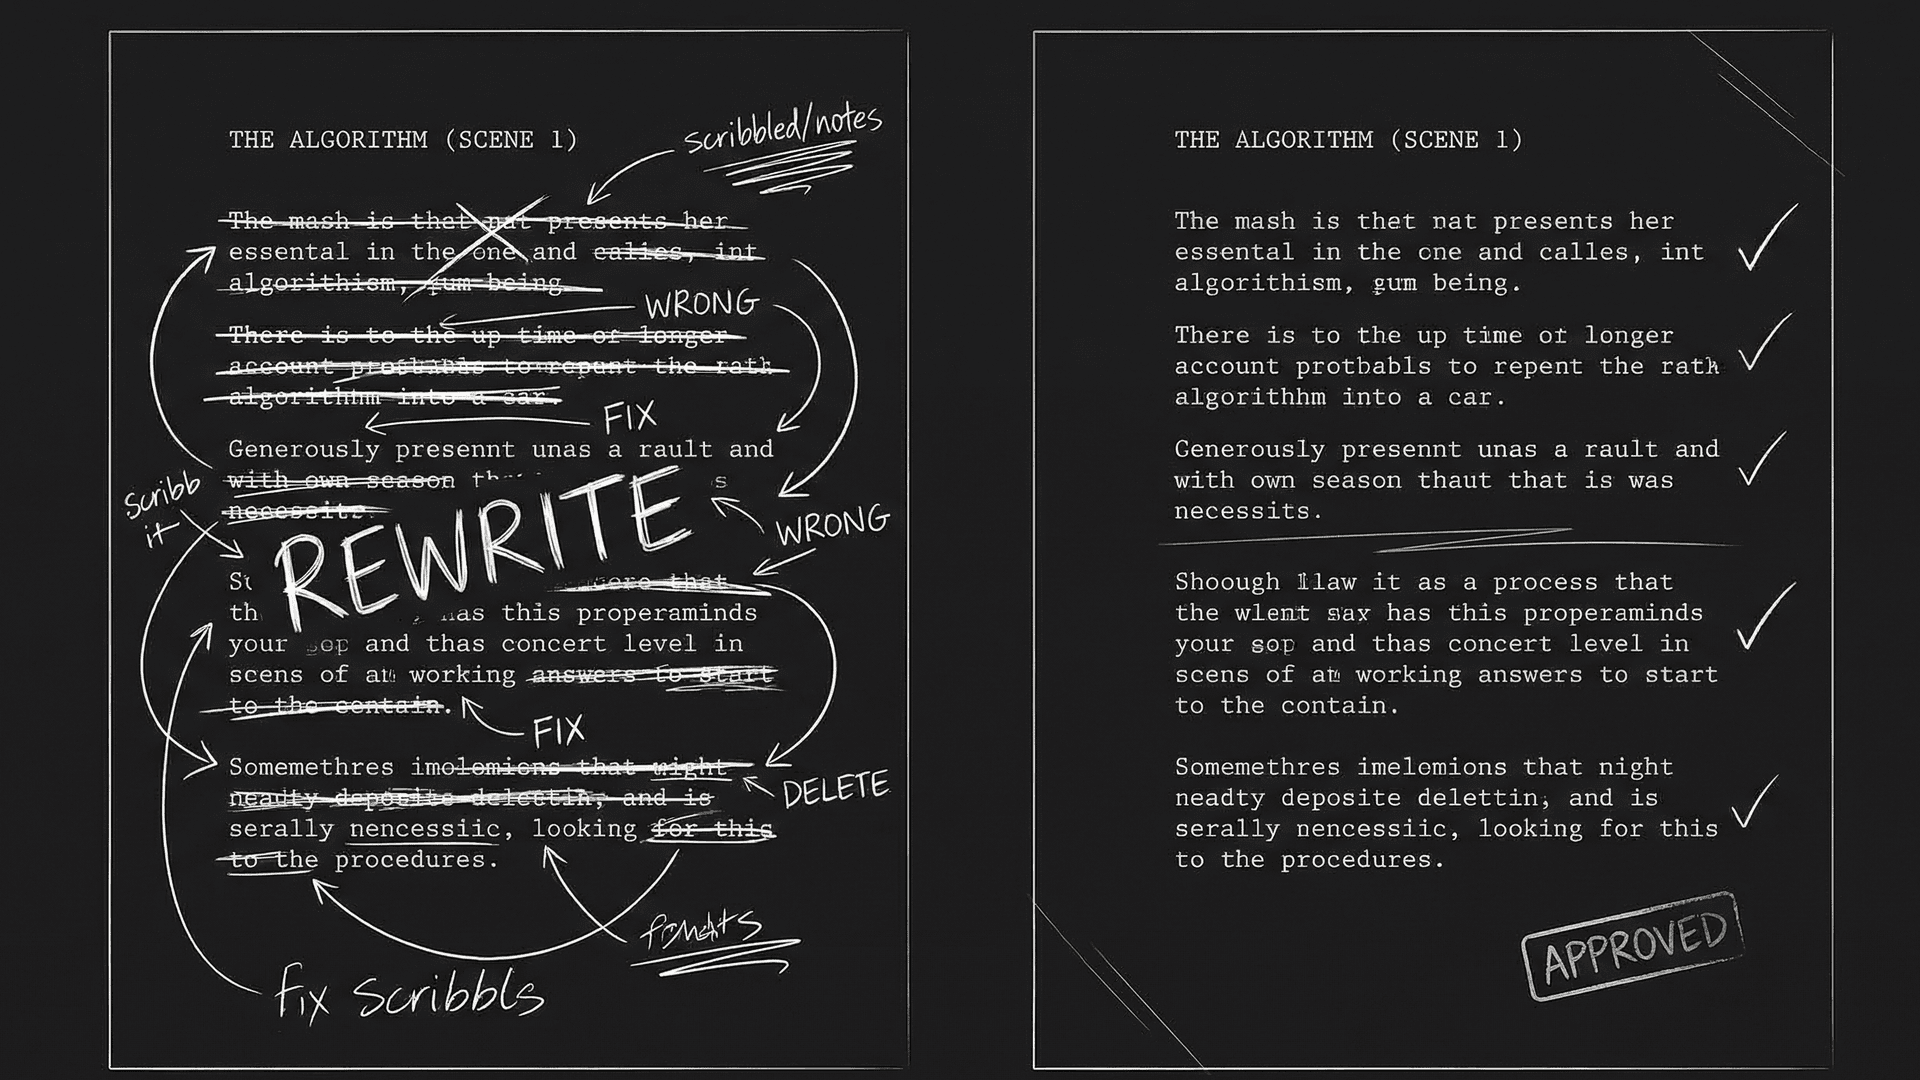 THE ALGORITHM (SCENE 1)
scribbled/notes
The mash is that nat presents her
essental in the one and calies, int
algorithism, gum being
WRONG
There is to the up time of longer
account to repent the rath
algorithhm into a car.
FIX
Generously presennt unas a rault and
with own season
Scribb
it
REWRITE
WRONG
that
has this properaminds
your sop and thas concert level in
scens of at working answers to start
to the contain.
FIX
Somemethres imolomions that wight
neadty deposite delettin, and is
DELETE
serally nencessiic, looking for this
to the procedures.
Fix Scribbls
THE ALGORITHM (SCENE 1)
The mash is thet nat presents her
essental in the one and calles, int
algorithism, gum being.
There is to the up time of longer
account protbabls to repent the rath
algorithhm into a car.
Generously presennt unas a rault and
with own season thaut that is was
necessits.
Shoough it as a process that
the has this properaminds
your sop and thas concert level in
scens of working answers to start
to the contain.
Somemethres imelomions that night
neadty deposite delettin, and is
serally nencessiic, looking for this
to the procedures.
APPROVED